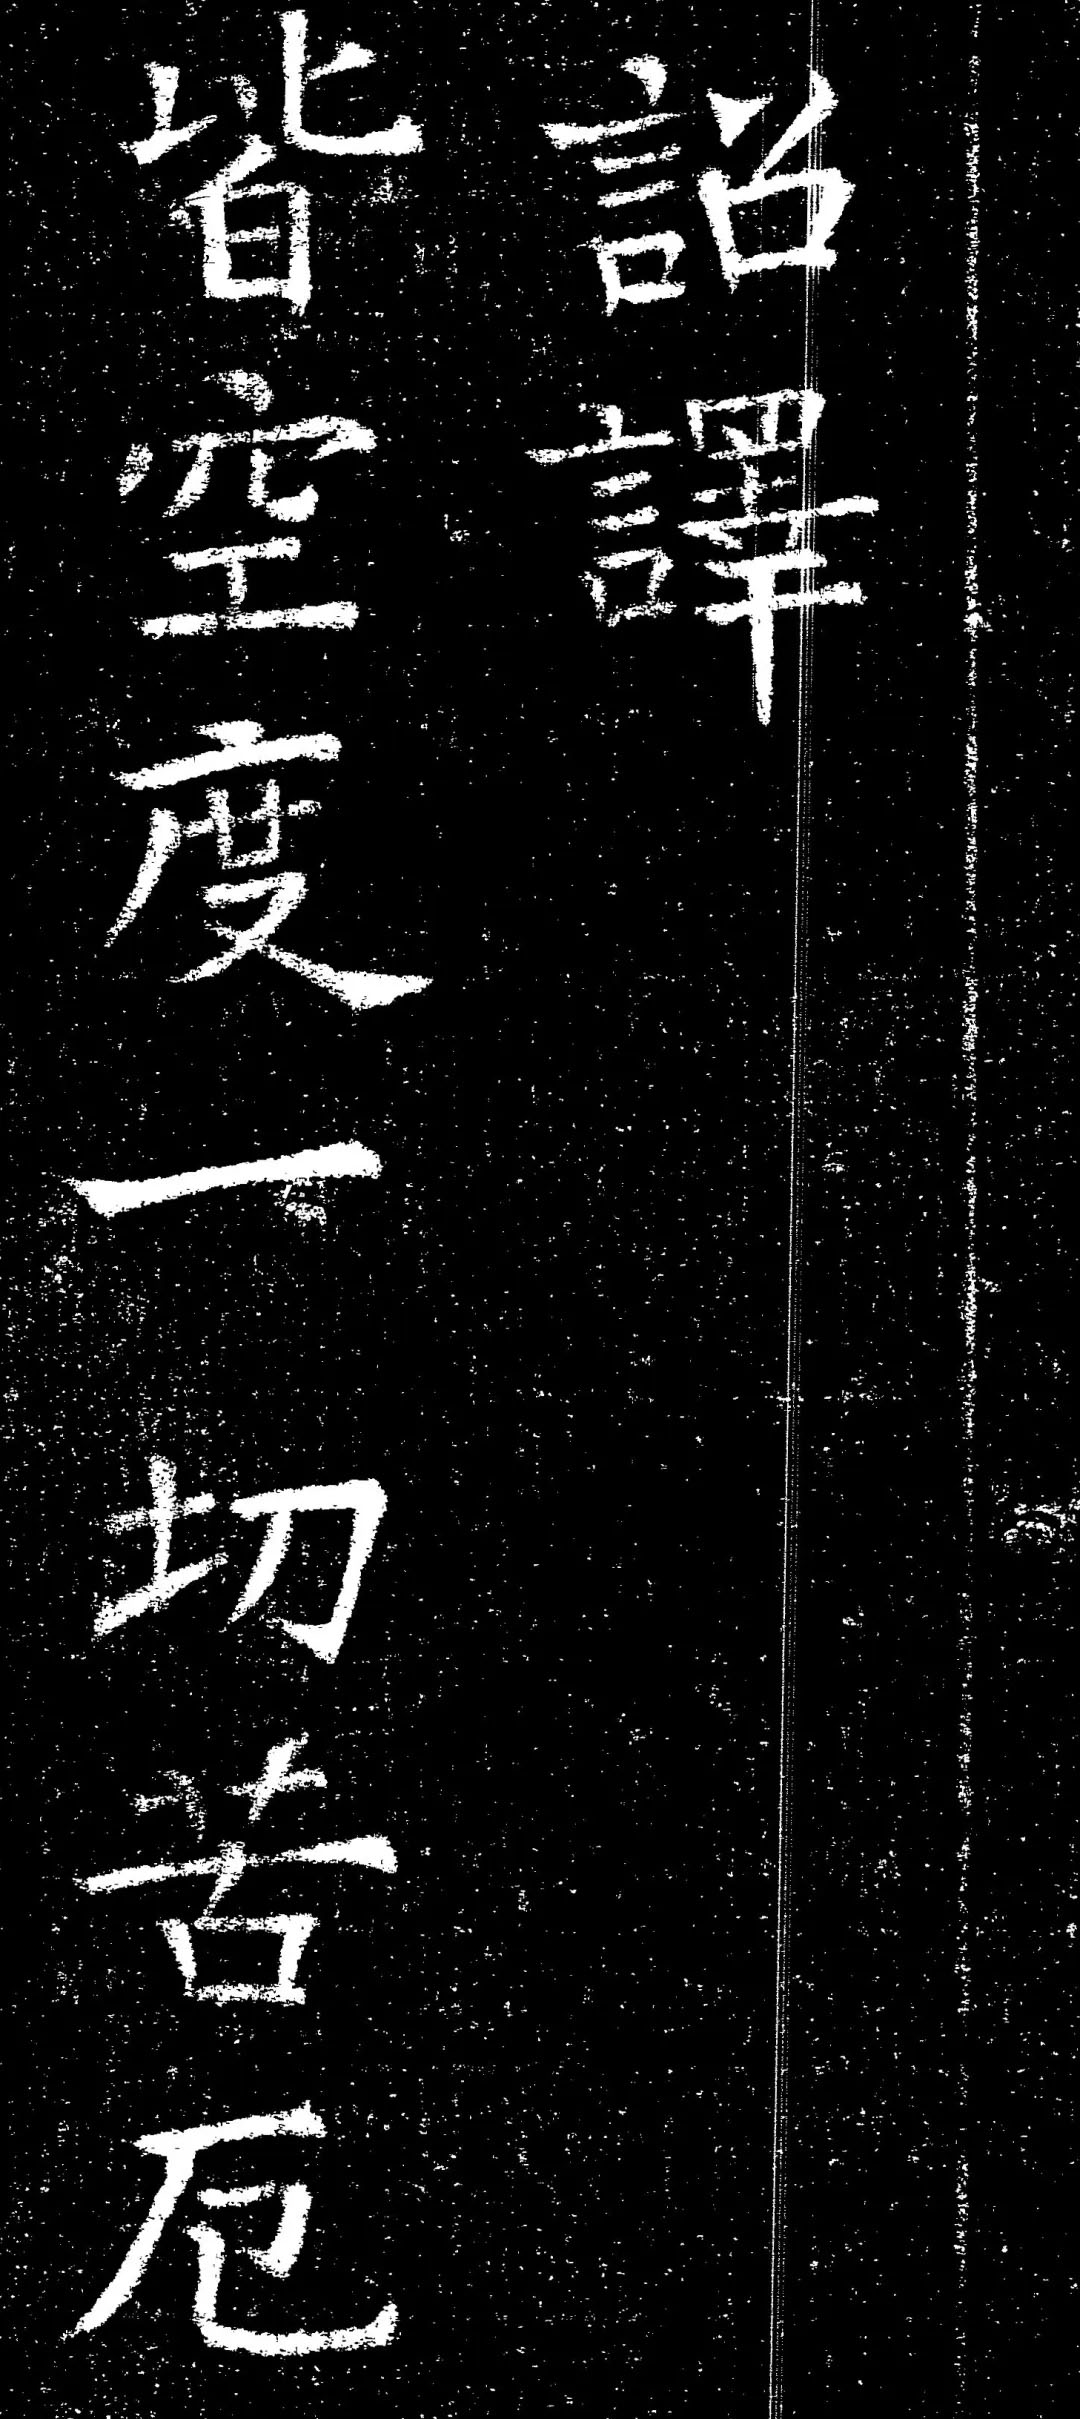 詔譯
皆空度一切苦厄